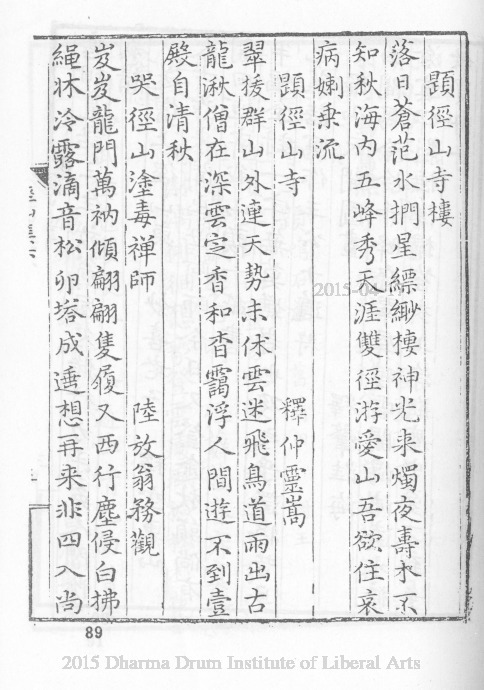 題徑山寺樓
落日蒼茫水捫星縹緲樓神光来燭夜壽木不
知秋海内五峰秀天涯雙徑游愛山吾欲住哀
病嬾乗流
題徑山寺 釋仲靈嵩
翠援群山外連天势未休雲迷飛鳥道雨出古
龍湫僧在深雲定香和杳靄浮人間遊不到臺
殿自清秋
哭徑山塗毒禅師 陸放翁務觀
岌岌龍門萬衲傾翩翩隻履又西行塵侵白拂
繩牀冷露滴音松卵塔成遥想再来非四入尚
89
2015-04
2015 Dharma Drum Institute of Liberal Arts